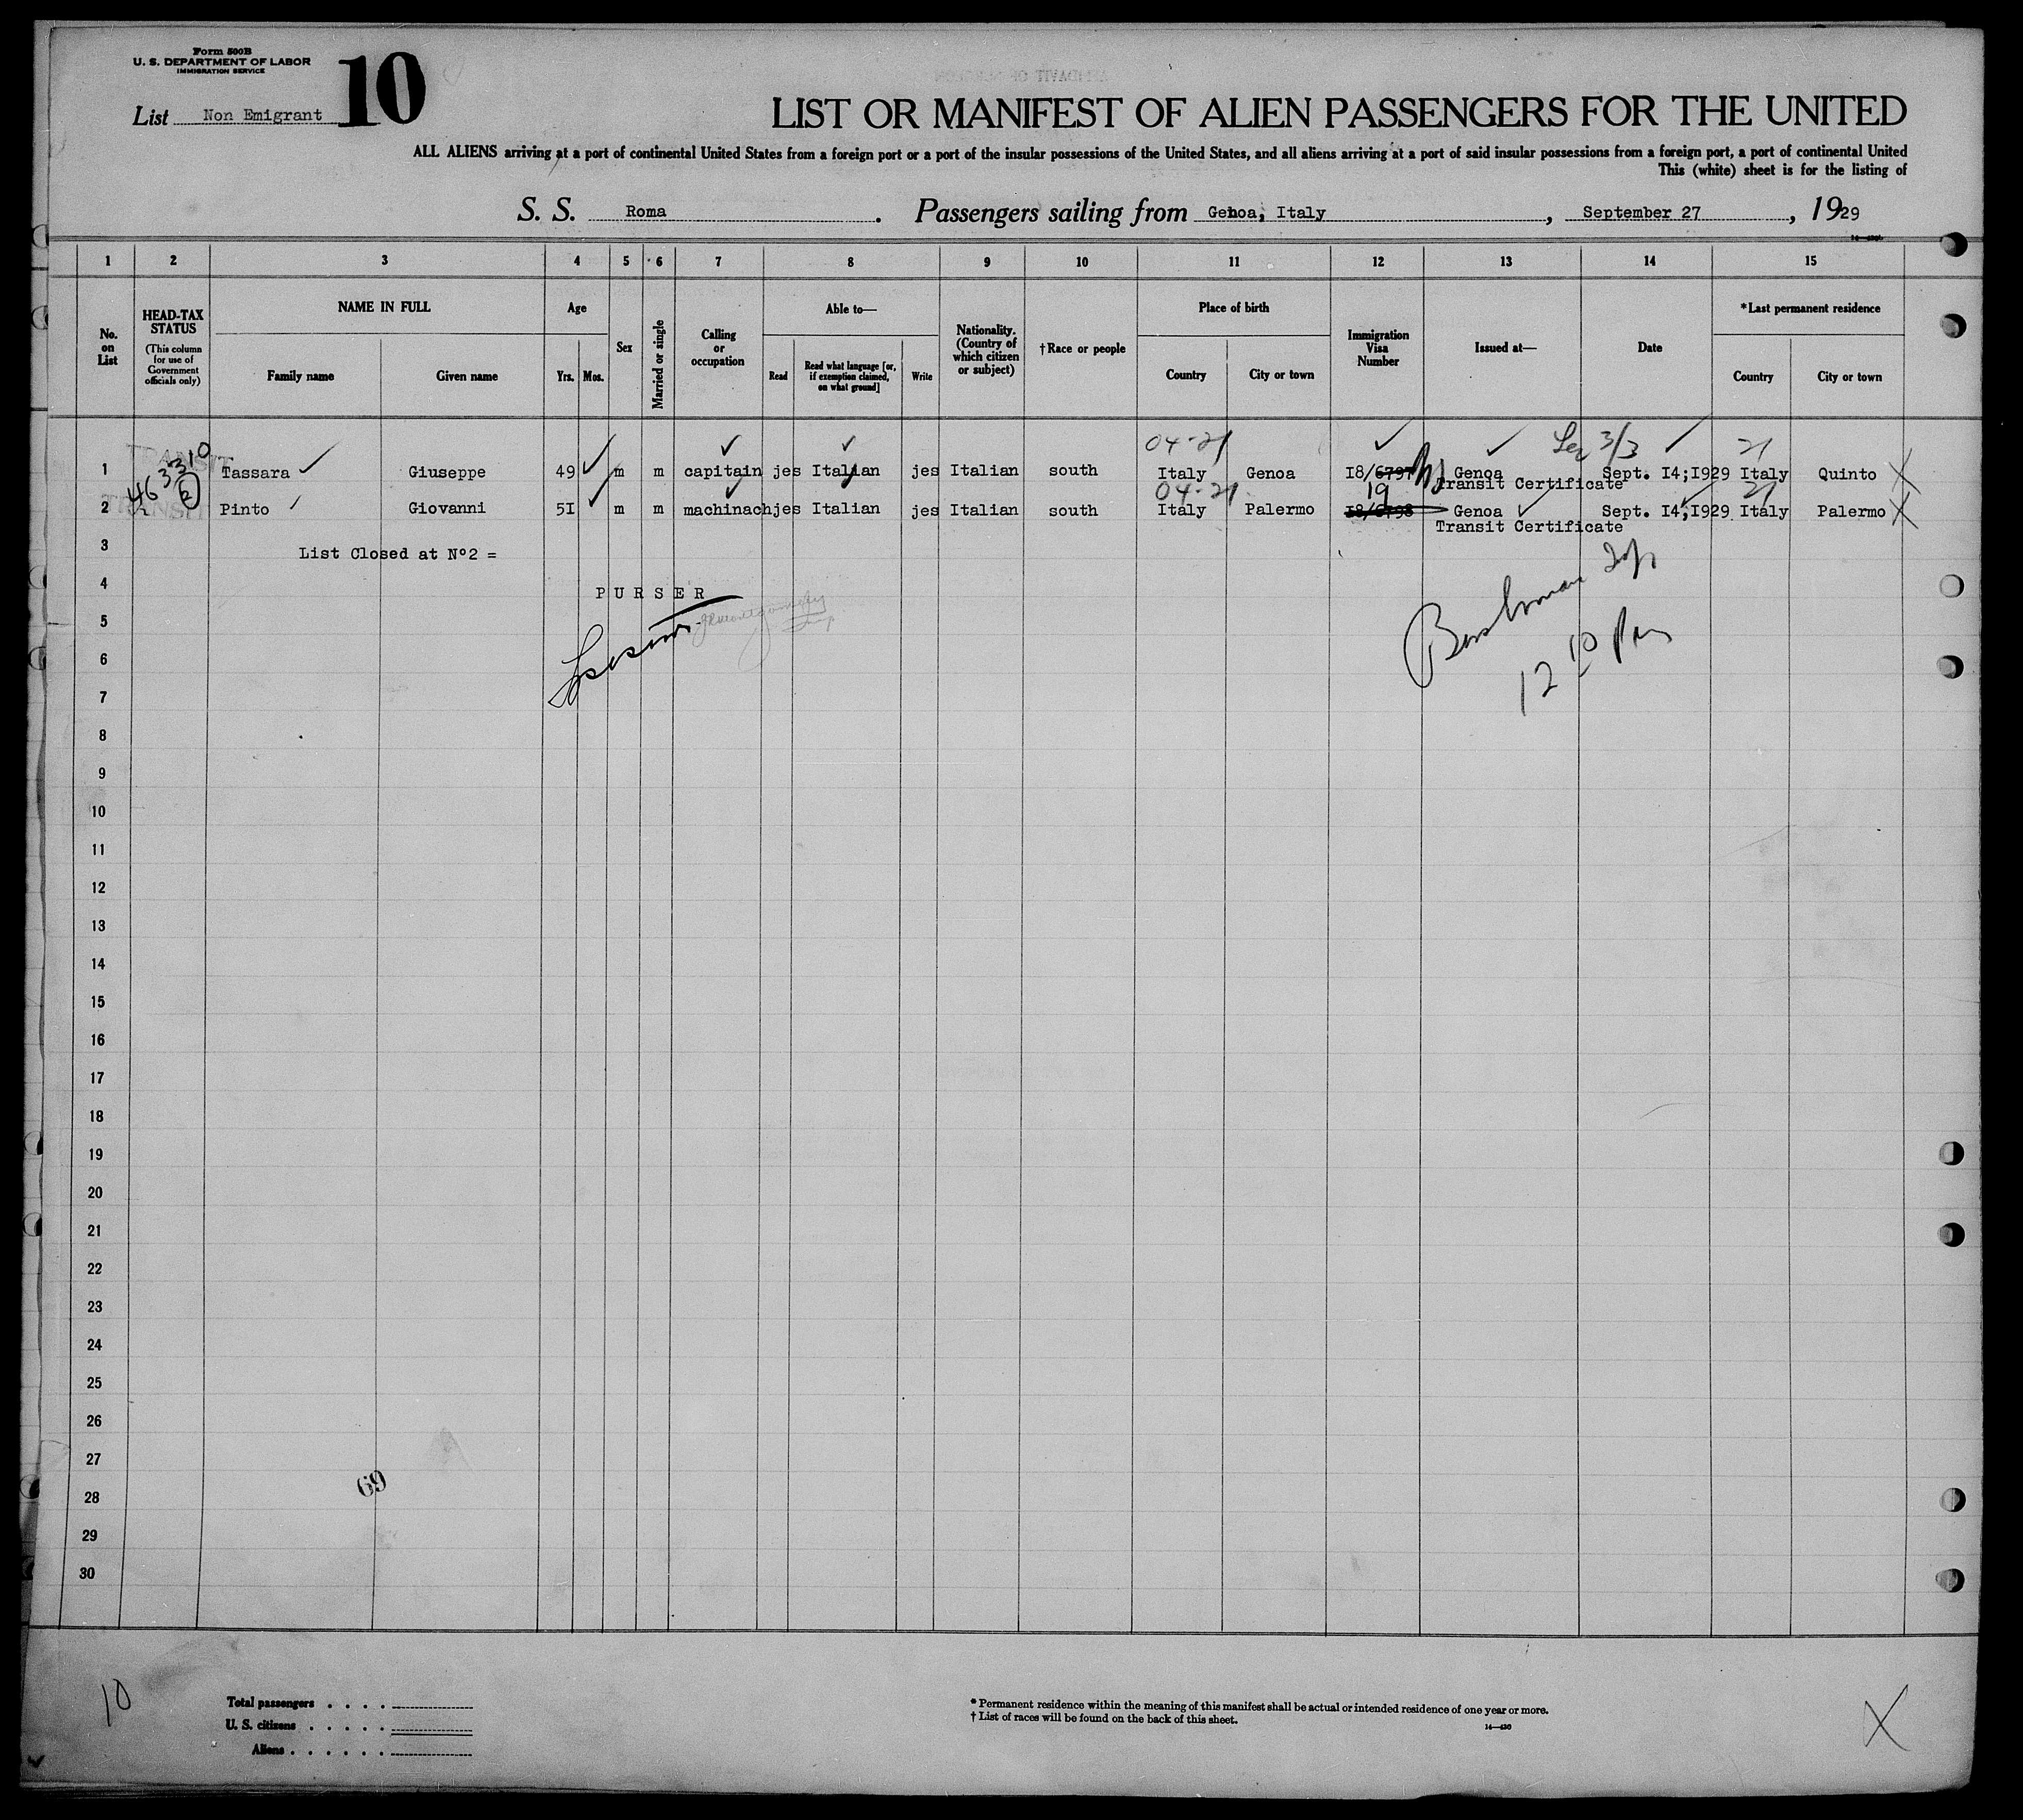 Form 500B
U. S. DEPARTMENT OF LABOR
IMMIGRATION SERVICE
10
List Non Emigrant
LIST OR MANIFEST OF ALIEN PASSENGERS FOR THE UNITED
ALL ALIENS arriving at a port of continental United States from a foreign port or a port of the insular possessions of the United States, and all aliens arriving at a port of said insular possessions from a foreign port, a port of continental United
This (white) sheet is for the listing of
S. S. Roma . Passengers sailing from Genoa, Italy , September 27 , 1929
1 2 3 4 5 6 7 8 9 10 11 12 13 14 15
No. on List
HEAD-TAX STATUS (This column for use of Government officials only)
NAME IN FULL
Family name Given name
Age
Yrs. Mos.
Sex
Married or single
Calling or occupation
Able to—
Read Read what language [or, if exemption claimed, on what ground] Write
Nationality. (Country of which citizen or subject)
† Race or people
Place of birth
Country City or town
Immigration Visa Number
Issued at—
Date
*Last permanent residence
Country City or town
04-21 3/3 21
TRANSIT
1 Tassara Giuseppe 49 m m capitain jes Italian jes Italian south Italy Genoa I8/6797 Genoa Sept. I4;I929 Italy Quinto X
Transit Certificate
04-21 19 21
TRANSIT
2 Pinto Giovanni 5I m m machinach jes Italian jes Italian south Italy Palermo I8/6798 Genoa Sept. I4;I929 Italy Palermo X
Transit Certificate
3 List Closed at Nº2 =
4 PURSER
5
6
12 10 pm
7
8
9
10
11
12
13
14
15
16
17
18
19
20
21
22
23
24
25
26
27
69
28
29
30
10
Total passengers . . . .
U. S. citizens . . . . .
Aliens . . . . . .
* Permanent residence within the meaning of this manifest shall be actual or intended residence of one year or more.
† List of races will be found on the back of this sheet.
14—430
X